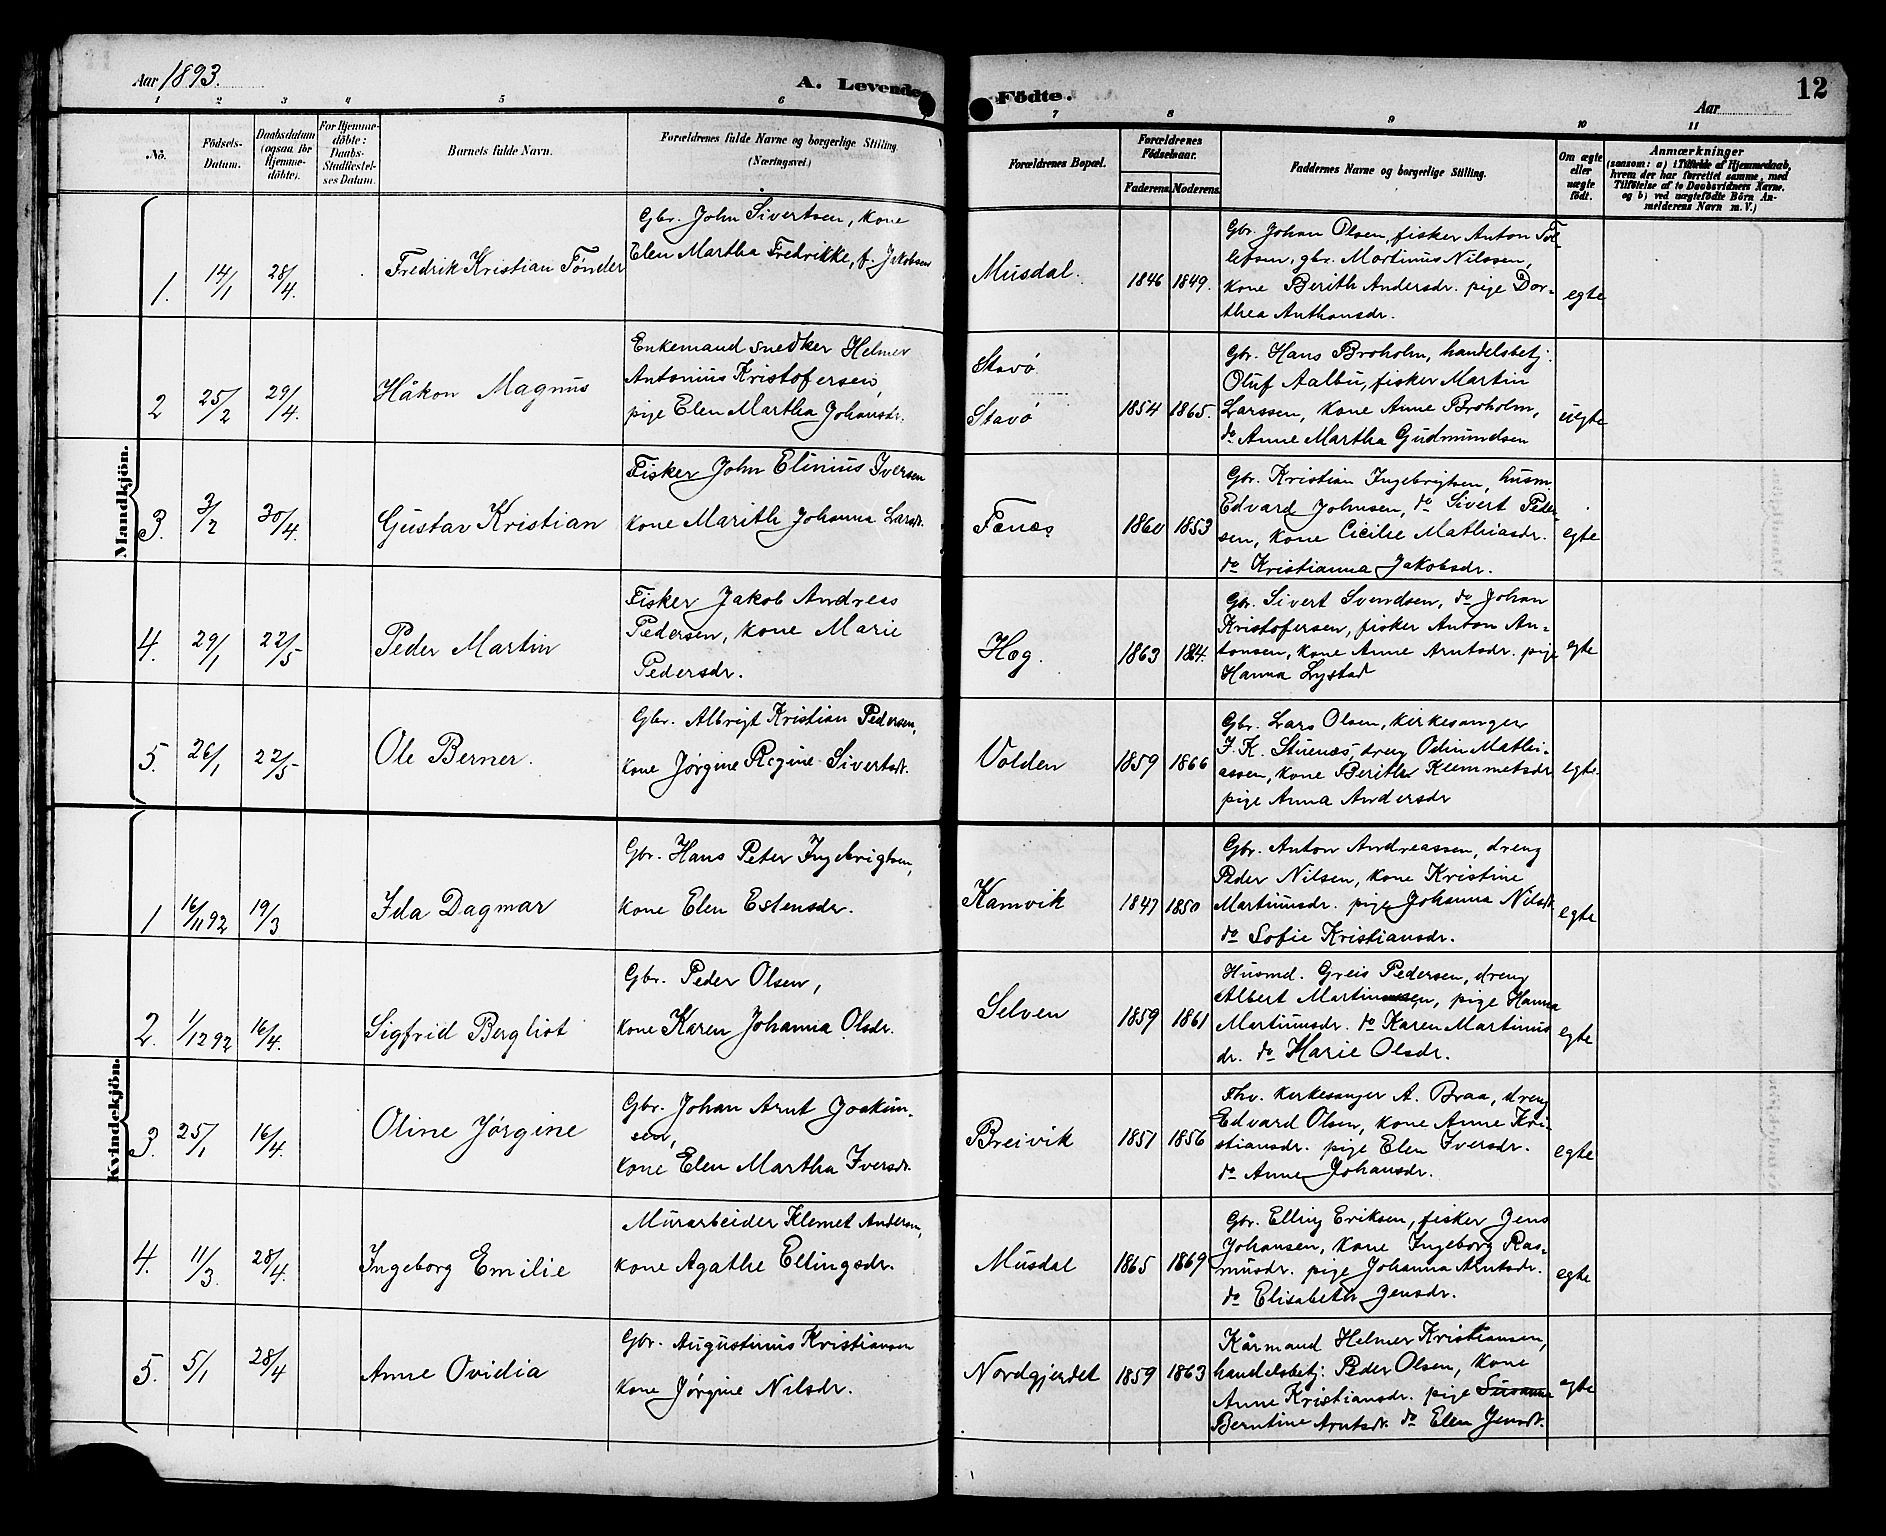 Aar 1893.
A. Levende Födte.
Aar
12
1 2 3 4 5 6 7 8 9 10 11
No.
Födsels-
Datum.
Daabsdatum
(ogsaa för
Hjemme-
döbte).
For Hjemme-
döbte:
Daabs-
Stadfæstel-
ses Datum.
Barnets fulde Navn.
Forældrenes fulde Navne og borgerlige Stilling.
(Næringsvei)
Forældrenes Bopæl.
Forældrenes
Födselsaar.
Faderens. Moderens.
Faddernes Navne og borgerlige Stilling.
Om ægte
eller
uægte
födt.
Anmærkninger
(saasom: a) i Tilfælde af Hjemmedaab,
hvem der har forrettet samme, med
Tilföielse af to Daabsvidners Navne.
og b) ved uægtefödte Börn An-
melderens Navn m. V.)
Mandkjön.
1. 14/1 28/4.
Fredrik Kristian Tönder
Gbr. John Sivertsen, kone
Elen Martha Fredrikke, f. Jakobsen
Musdal.
1846 1849.
Gbr. Johan Olsen, fisker Anton Tol-
lefsen, gbr. Martinus Nilssen,
kone Berith Andersdr. pige Dor-
thea Anthonsdr.
egte
2 25/2 29/4.
Håkon Magnus
Enkemand snedker Helmer
Antonius Kristofersen,
pige Elen Martha Johansdr.
Stavö
Stavö
1854 1865.
Gbr. Hans Broholm, handelsbetj.
Oluf Aalbu, fisker Martin
Larssen, kone Anne Broholm,
do Anne Martha Gudmundsen
uegte
3. 3/2 30/4.
Gustav Kristian
Fisker John Elinius Iversen
kone Marith Johanna Larsdr.
Fænes
1860 1853
Gbr. Kristian Ingebrigtsen, husm.
Edvard Johnsen, do Sivert Peder-
sen, kone Cicilie Mathiasdr.
do Kristianna Jakobsdr.
egte
4. 29/1 22/5
Peder Martin
Fisker Jakob Andreas
Pedersen, kone Marie
Pedersdr.
Hæg.
1863 1864.
Gbr. Sivert Svendsen, do Johan
Kristofersen, fisker Anton An-
tonsen, kone Anne Arntsdr. pige
Hanna Lystad
egte
5. 26/1 22/5
Ole Berner.
Gbr. Albrigt Kristian Pedersen,
kone Jørgine Regine Sivertsdr.
Volden
1859 1866
Gbr. Lars Olsen, kirkesanger
J. K. Stuenæs, dreng Odin Mathi-
assen, kone Berith Klemmetsdr
pige Anna Andersdr
egte.
Kvindekjön.
1 16/11 92 19/3
Ida Dagmar
Gbr. Hans Peter Ingebrigtsen,
kone Elen Estensdr.
Kamvik
1847 1850
Gbr. Anton Andreassen, dreng
Peder Nilsen, kone Kristine
Martinusdr. pige Johanna Nilsdr.
do Sofie Kristiansdr.
egte
2. 1/12 92 16/4.
Sigfrid Bergliot
Gbr. Peder Olsen,
kone Karen Johanna Olsdr.
Selven
1859 1861
Husmd. Greis Pedersen, dreng
Albert Martinussen, pige Hanna
Martinusdr. do Karen Martinus
dr. do Marie Olsdr.
egte
3. 25/1 16/4.
Oline Jørgine
Gbr. Johan Arnt Joakim-
sen,
kone Elen Martha Iversdr.
Breivik
1851 1856
Fhv. kirkesanger A. Braa, dreng
Edvard Olsen, kone Anne Kri-
stiansdr. pige Elen Iversdr.
do Anne Johansdr.
egte
4. 11/3 28/4.
Ingeborg Emilie
Murarbeider Klemet Andersen,
kone Agathe Ellingsdr.
Musdal
1865 1869
Gbr. Elling Eriksen, fisker Jens
Johansen, kone Ingeborg Ras-
musdr. pige Johanna Arntsdr.
do Elisabeth Jensdr.
egte
5. 5/1 28/4
Anne Ovidia
Gbr. Augustinus Kristiansen
kone Jørgine Nilsdr.
Nordgjerdet
1859 1863
Kårmand Helmer Kristiansen,
handelsbetj. Peder Olsen, kone
Anne Kristiansdr. pige Susanna
Berntine Arntsdr. do Elen Jensdr.
egte